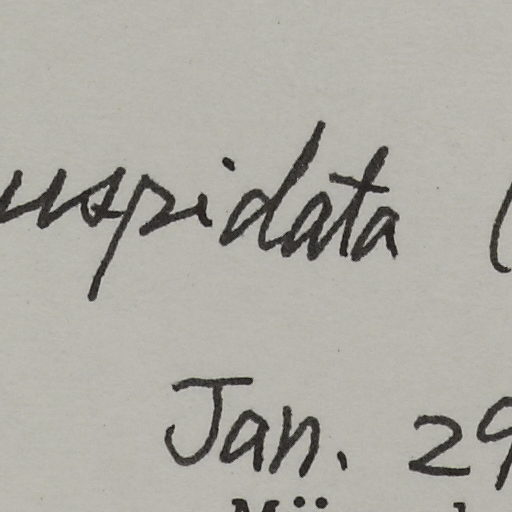 uspidata (
Jan. 29